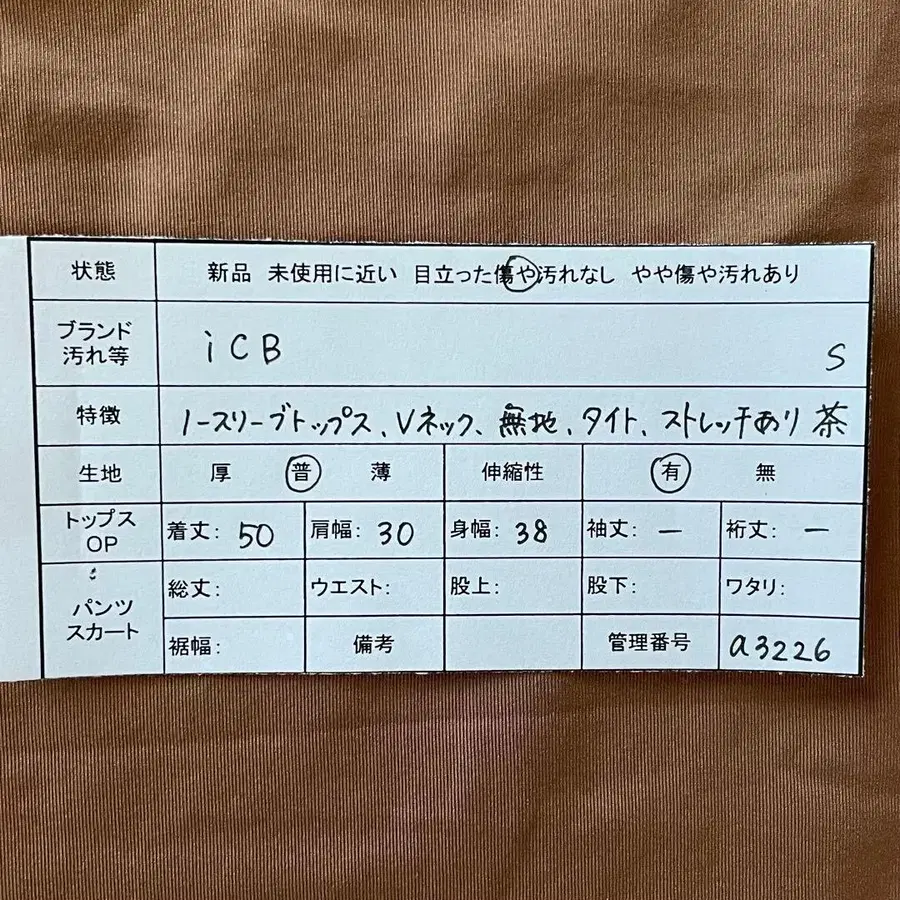 状態 新品 未使用に近い 目立った傷や汚れなし やや傷や汚れあり
ブランド
汚れ等 iCB S
特徴 ノースリーブトップス、Vネック、無地、タイト、ストレッチあり 茶
生地 厚 普 薄 伸縮性 有 無
トップス
OP 着丈: 50 肩幅: 30 身幅: 38 袖丈: ー 裄丈: ー
パンツ
スカート 総丈: ウエスト: 股上: 股下: ワタリ:
裾幅: 備考 管理番号 a3226